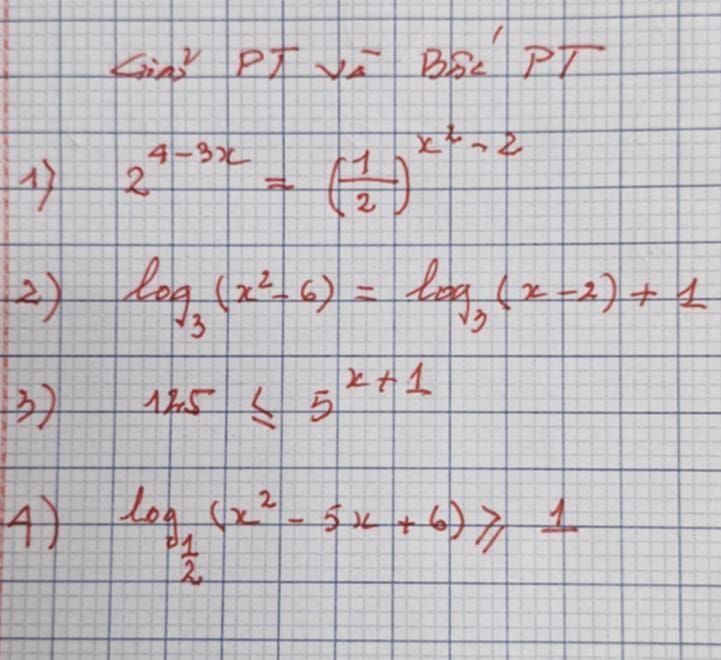 Giải PT và Bất PT
1) 2^{4-3x} = (1/2)^{x^2-2}
2) log_3(x^2-6) = log_3(x-2)+1
3) 125 ≤ 5^{x+1}
4) log_{1/2}(x^2-5x+6) ≥ 1